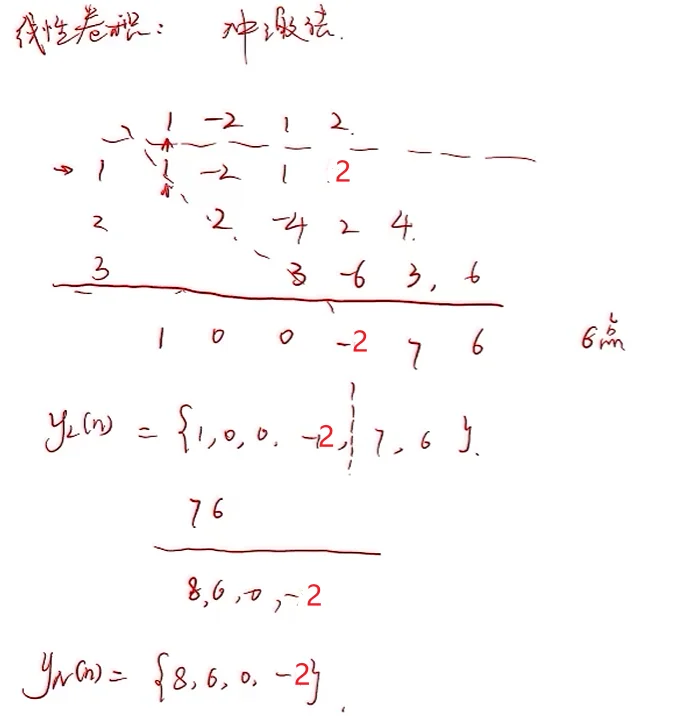 线性卷积: 冲激法.
1 -2 1 2.
→ 1 1 -2 1 2
2 2. -4 2 4.
3 3 -6 3, 6
1 0 0 -2 7 6 6
y_L(n) = {1, 0, 0, -2, 7, 6 }.
7 6
8, 6, 0, -2
y_N(n) = {8, 6, 0, -2}.